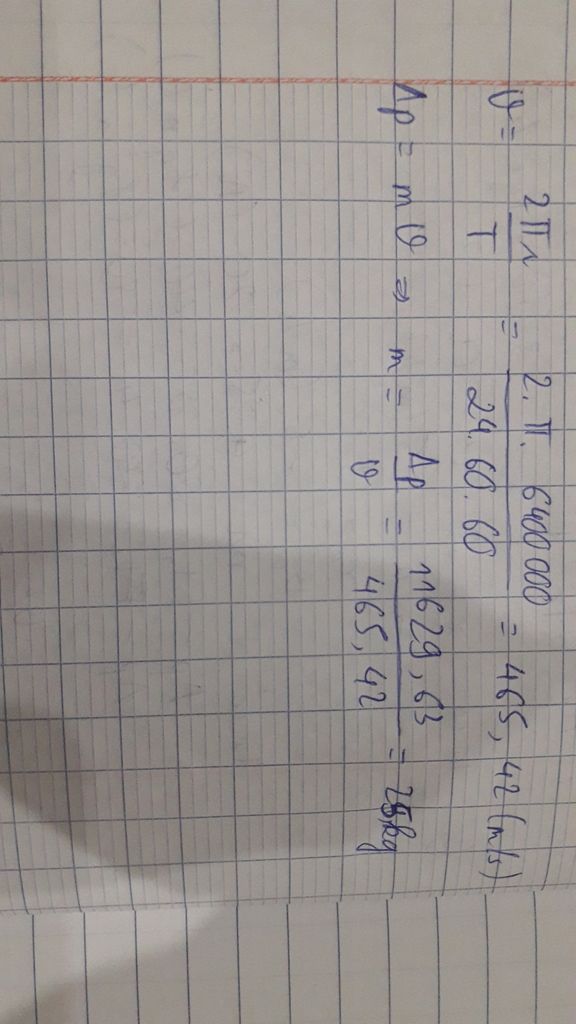 v = 2πr / T = 2.π.6400000 / 24.60.60 = 465,42 (m/s)
Δp = mv ⇒ m = Δp / v = 11629,63 / 465,42 = 25kg